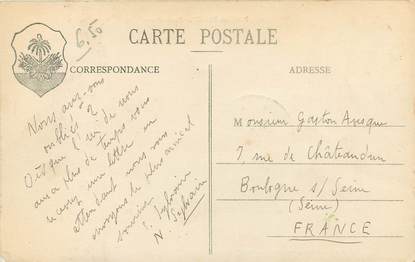 6,50
CARTE POSTALE
CORRESPONDANCE
ADRESSE
Nous avez-vous
oubliés ?
Dès que l'un de nous
aura plus de temps vous
recevrez une lettre en
attendant nous vous
envoyons le plus amical
souvenir
Sylvain
N.
Monsieur Gaston
7 rue de Châteaudun
Boulogne s/ Seine
(Seine)
FRANCE